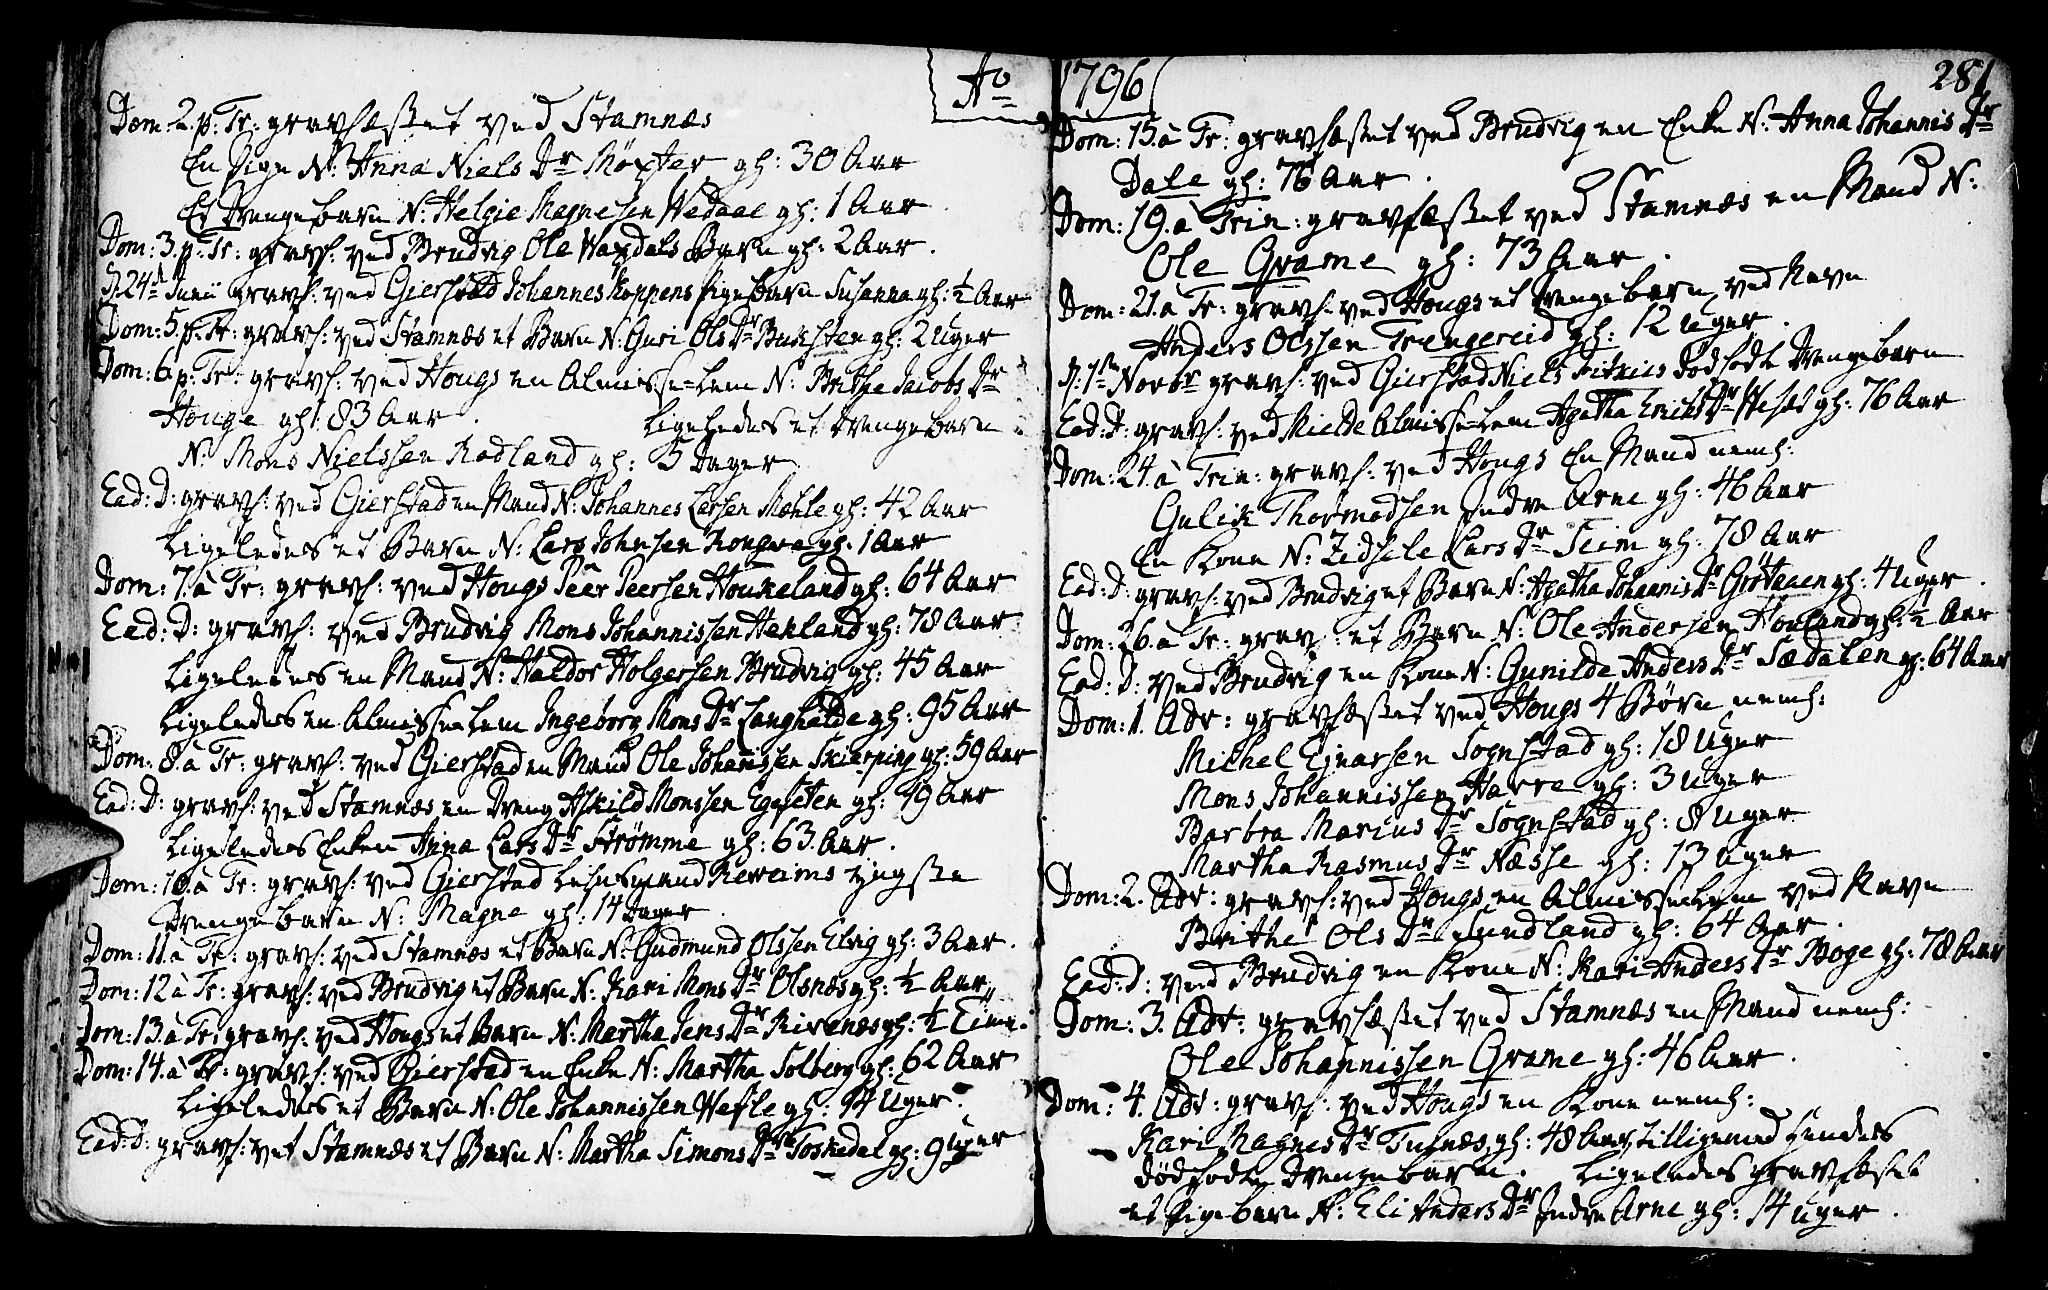 Ao 1796
281
Dom: 2. p: Tr: gravfæstet ved Stamnæs
En Pige N: Anna Niels Dr Møxter gl: 30 Aar
Et Drengebarn N: Helgie Magnesen Wedaae gl: 1 Aar
Dom: 3. p: Tr: gravf: ved Brudvig Ole Waxdals Barn gl: 2 Aar.
D. 24de Junii gravf: ved Gierstad Johannes Koppens Pigebarn Susanna gl: ½ Aar
Dom: 5. p: Tr: gravf: ved Stamnæs et Barn N: Guri Ols Dr Buksten gl: 2 Uger
Dom: 6 p: Tr: gravf: ved Hougs en Almisse-Lem N: Brithe Jacobs Dr
Houge gl: 83 Aar. Ligeledes et Drengebarn
N: Mons Nielssen Radland gl: 5 Dager
Ead: D: gravf: ved Gierstad en Mand N: Johannes Larsen Mæhle gl: 42 Aar
Ligeledes et Barn N: Lars Johnsen Rongve gl. 1 Aar
Dom: 7. à Tr: gravf: ved Hougs Peer Peersen Houkeland gl: 64 Aar
Ead: D: gravf: ved Brudvig Mons Johannissen Hakland gl: 78 Aar
Ligeledes en Mand N: Haldor Holgersen Brudvig gl: 45 Aar
Ligeledes en Almisse-Lem Ingeborg Mons Dr Langhalde gl: 95 Aar
Dom: 8. à Tr: gravf: ved Gierstad en Mand Ole Johannissen Skierping gl: 59 Aar
Ead: D: gravf: ved Stamnæs en Dreng Askild Monssen Eggseten gl: 19 Aar
Ligeledes Enken Anna Lars Dr Strømme gl: 63 Aar.
Dom: 10. à Tr: gravf: ved Gierstad Lehnsmand Reweims yngste
Drengebarn N: Magne gl: 14 Dager.
Dom: 11. à Tr: gravf: ved Stamnæs et Barn N: Gudmund Olssen Elvig gl: 3 Aar.
Dom: 12 à Tr: gravf: ved Brudvig et Barn N: Kari Mons Dr Olsnæs gl: ½ Aar
Dom: 13. à Tr: gravf: ved Hougs et Barn N: Martha Jens Dr Rivenæs gl: ½ Time.
Dom: 14. à Tr: gravf: ved Gierstad en Enke N: Martha Solberg gl: 62 Aar
Ligeledes et Barn N: Ole Johannissen Wefle gl: 14 Uger.
Ead: D: gravf: vet Stamnæs et Barn N: Martha Simons Dr Toskedal gl: 9 Uger
Dom: 15. à Tr: gravfæstet ved Brudvig en Enke N: Anna Johannis Dr
Dale gl: 76 Aar.
Dom: 19. à Trin: gravfæstet ved Stamnæs en Mand N:
Ole Grame gl: 73 Aar.
Dom: 21. à Tr: gravf: ved Hougs et Drengebarn ved Navn
Anders Olssen Trengereid gl: 12 Uger.
D: 1ste Novbr gravf: ved Gierstad Niels dødfødte Drengebarn
Ead: D: gravf: ved Mielde Almisse-Lem Agatha Eriks Dr gl: 76 Aar
Dom: 24. à Trin: gravf: ved Hougs En Mand neml:
Gulik Thormodsen Indre Arne gl: 46 Aar
En Kone N: Zidsele Lars Dr Seim gl: 78 Aar
Ead: D: gravf: ved Brudvig et Barn N: Agatha Johannis Dr Grøteen gl: 4 Uger.
Dom: 26. à Tr: gravf: et Barn N: Ole Andersen Houland gl: ½ Aar
Ead: D: ved Brudvig en Kone N: Gunilde Anders Dr Sædalen gl: 64 Aar
Dom: 1. Adv: gravfæstet ved Hougs 4 Børn neml:
Michel Ejnarsen Sognstad gl: 18 Uger
Mons Johannissen Harre gl: 3 Uger
Barbra Marius Dr Sognstad gl: 8 Uger
Martha Rasmus Dr Næsse gl: 13 Uger
Dom: 2. Adv: gravf: ved Hougs en Almisse-Lem ved Navn
Brithe Ols Dr Sundland gl: 64 Aar.
Ead: D: ved Brudvig en Kone N: Kari Anders Dr Boge gl: 78 Aar
Dom: 3. Adv: gravfæstet ved Stamnæs en Mand neml:
Ole Johannissen Grame gl: 46 Aar.
Dom: 4. Adv: gravf: ved Hougs en Kone neml:
Kari Magnes Dr Tunæs gl: 48 Aar, tilligemed hendes
dødfødte Drengebarn. Ligeledes gravfæstet
et Pigebarn N: Eli Anders Dr Indre Arne gl: 14 Uger.